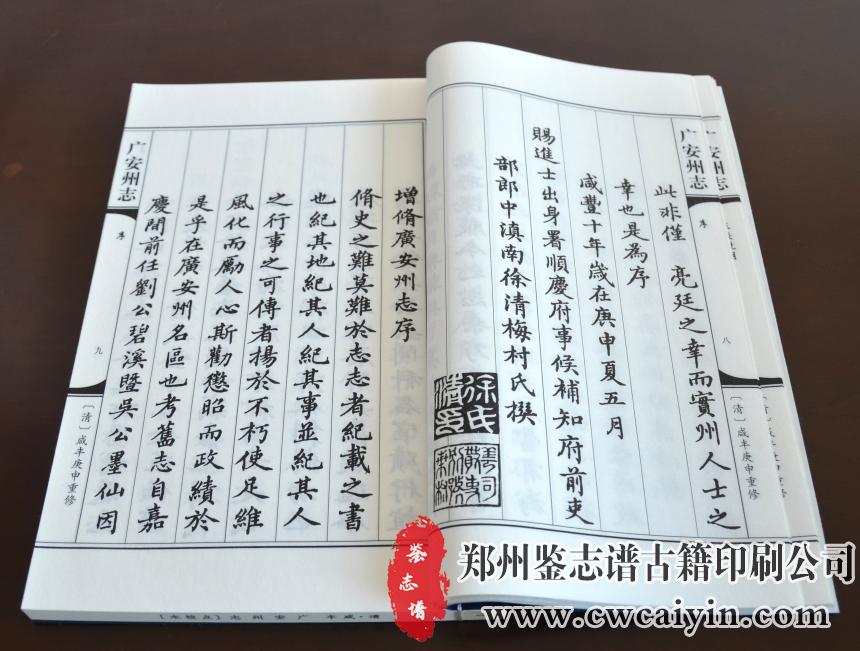 广安州志
序
八
〔清〕咸丰庚申重修
此非僅 亮廷之幸而實州人士之
幸也是為序
咸豐十年歲在庚申夏五月
賜進士出身署順慶府事候補知府前吏
部郎中滇南徐清梅村氏撰
徐氏
清印
增脩廣安州志序
脩史之難莫難於志志者紀載之書
也紀其地紀其人紀其事並紀其人
之行事之可傳者揚於不朽使足維
風化而勵人心斯勸懲昭而政績於
是乎在廣安州名區也考舊志自嘉
慶間前任劉公碧溪暨吳公墨仙因
广安州志
序
九
〔清〕咸丰庚申重修
广安州志
清·咸丰 广安州志〔点校本〕
鉴志谱
郑州鉴志谱古籍印刷公司
www.cwcaiyin.com